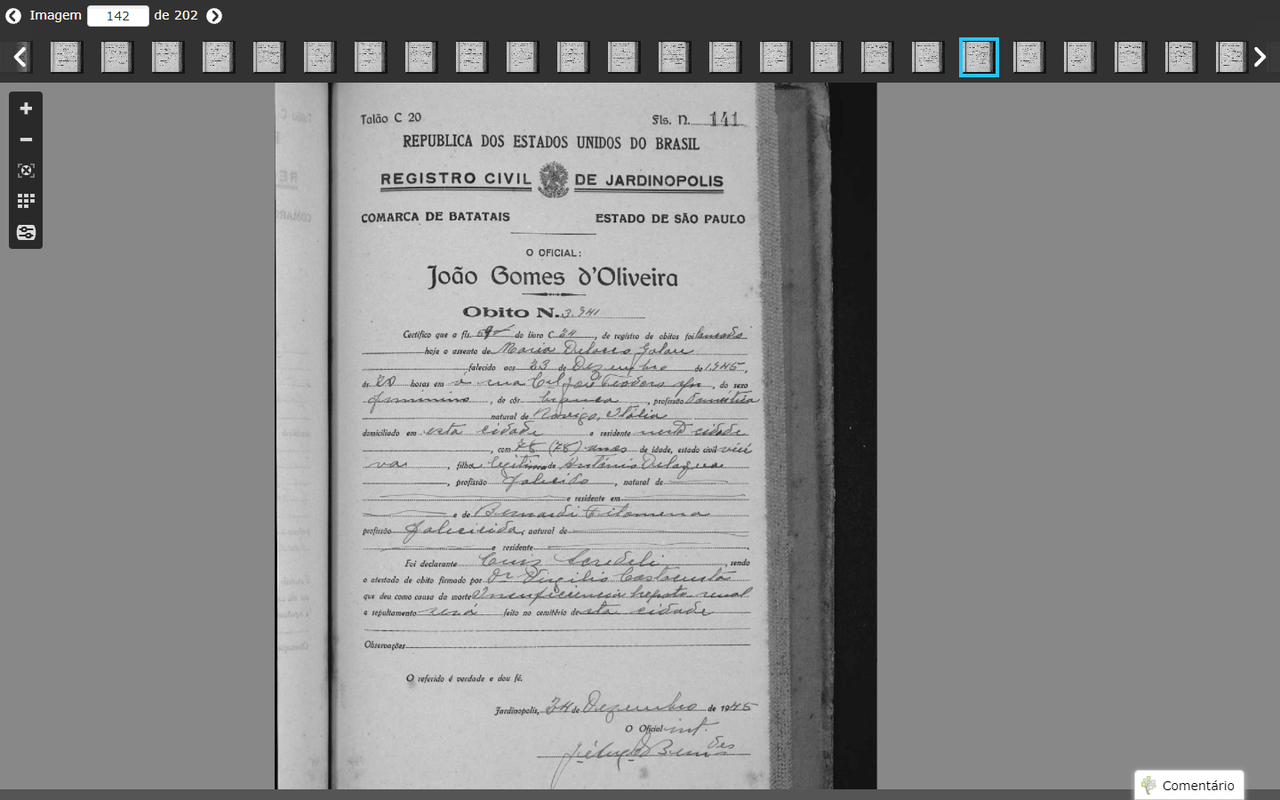 Imagem 142 de 202
Talão C 20
Fls. N. 141
REPUBLICA DOS ESTADOS UNIDOS DO BRASIL
REGISTRO CIVIL DE JARDINOPOLIS
COMARCA DE BATATAIS ESTADO DE SÃO PAULO
O OFICIAL:
João Gomes d'Oliveira
Obito N. 3.941
Certifico que a fls. do livro C. 24, de registro de obitos foi lançado
hoje o assento de Maria
falecido aos 23 de Dezembro de 1.945,
ás 20 horas em á rua Cel José Teodoro s/n, do sexo
feminino, de côr branca, profissão Domestica
natural de Rovigo, Itália
domiciliado em esta cidade e residente nesta cidade
, com 78 (78) anos de idade, estado civil viú
va, filha legitima de Antônio
, profissão falecido, natural de
e residente em
e de Bernardi Filomena
profissão falecida, natural de
e residente
Foi declarante Luiz, sendo
o atestado de obito firmado por Dr Virgilio
que deu como causa da morte Insuficiencia hepato renal
e sepultamento será feito no cemitério desta cidade
Observações
O referido é verdade e dou fé.
Jardinopolis, 24 de Dezembro de 1945
O Oficial int.
Comentário